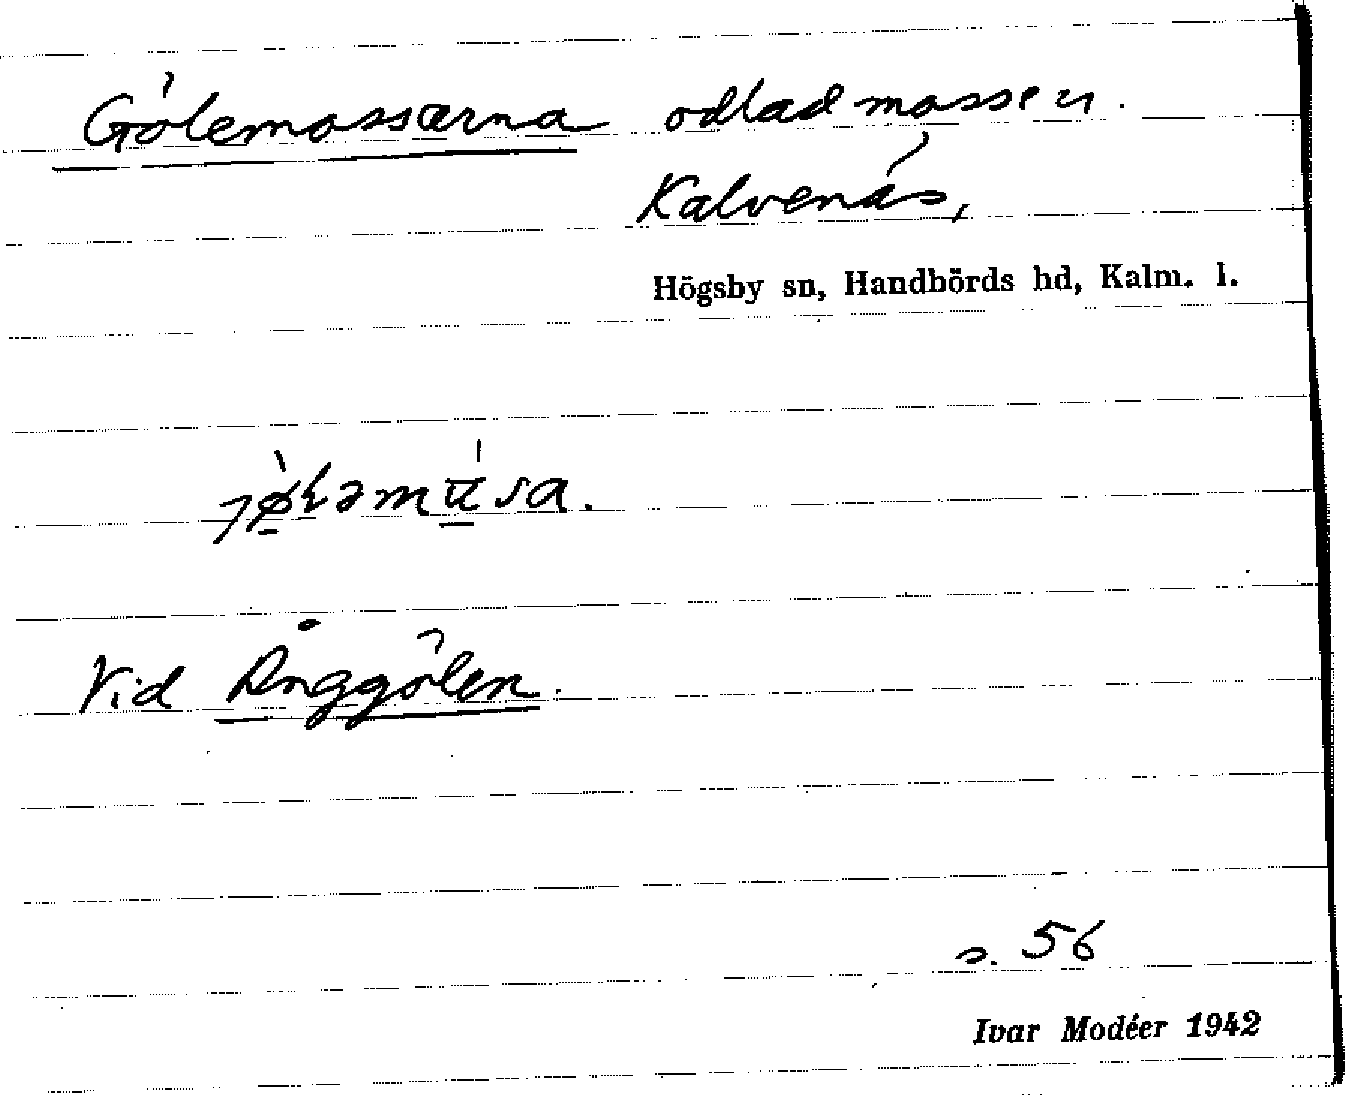 Gölemossarna odlad mossen.
Kalvenäs,
Högsby sn, Handbörds hd, Kalm. l.
Vid Änggölen.
s. 56
Ivar Modéer 1942